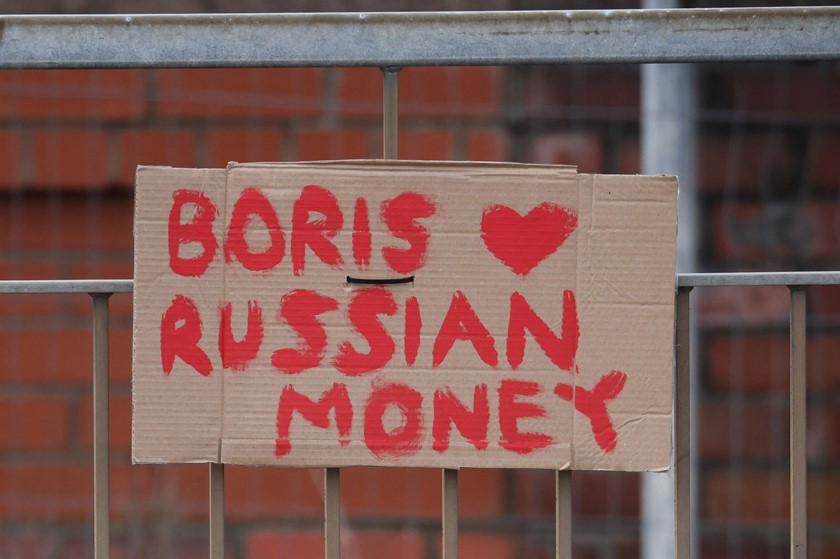 BORIS ♥
RUSSIAN
MONEY